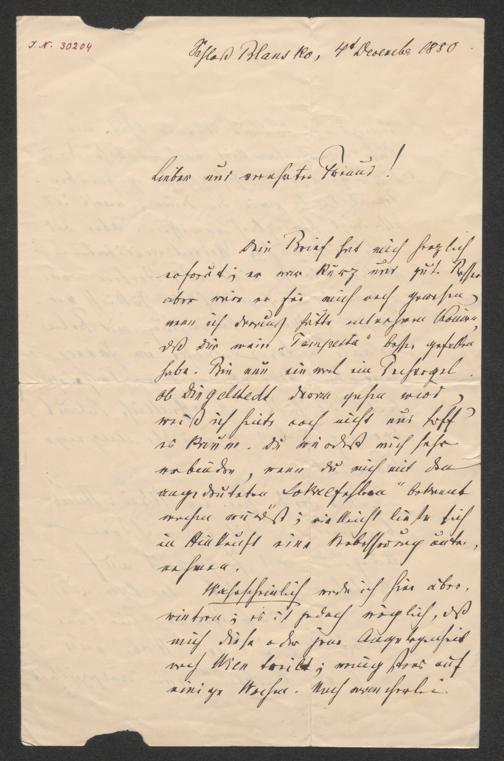 J. N. 30204
Schloß Blansko, 4t December 1880
Lieber und verehrter Freund!
Dein Brief hat mich herzlich
erfreut; er war kurz und gut. Besser
aber wäre er für mich noch gewesen,
wenn ich daraus hätte entnehmen können,
daß Dir mein "Tempelta" besser gefallen
habe. Bin nun einmal ein Pechvogel.
Ob Dingelstedt daran gehen wird,
weiß ich heute noch nicht und hoff'
es kaum. Du würdest mich sehr
verbinden, wenn Du mich mit den
angedeuteten "Lokalfehlern" bekannt
machen würdest; vielleicht ließe sich
in Hinkunft eine Verbesserung unter-
nehmen.
Wahrscheinlich werde ich hier über-
wintern; es ist jedoch möglich, daß
mich diese oder jene Angelegenheit
nach Wien treibt; wenigstens auf
einige Wochen. Nach mancherlei